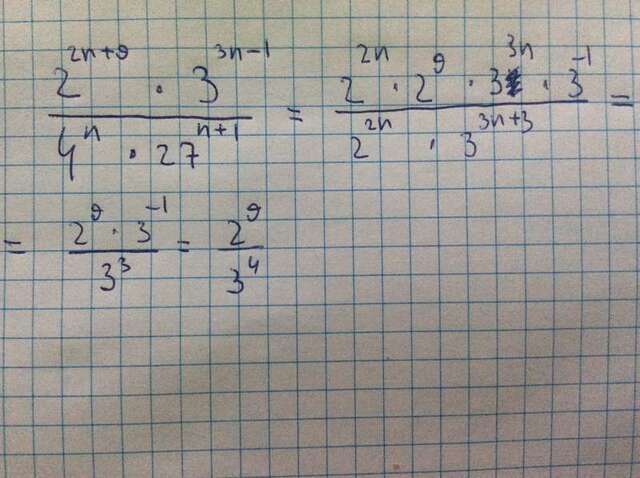 2^{2n+9} · 3^{3n-1} / 4^n · 27^{n+1} = 2^{2n} · 2^9 · 3^{3n} · 3^{-1} / 2^{2n} · 3^{3n+3} =
= 2^9 · 3^{-1} / 3^3 = 2^9 / 3^4